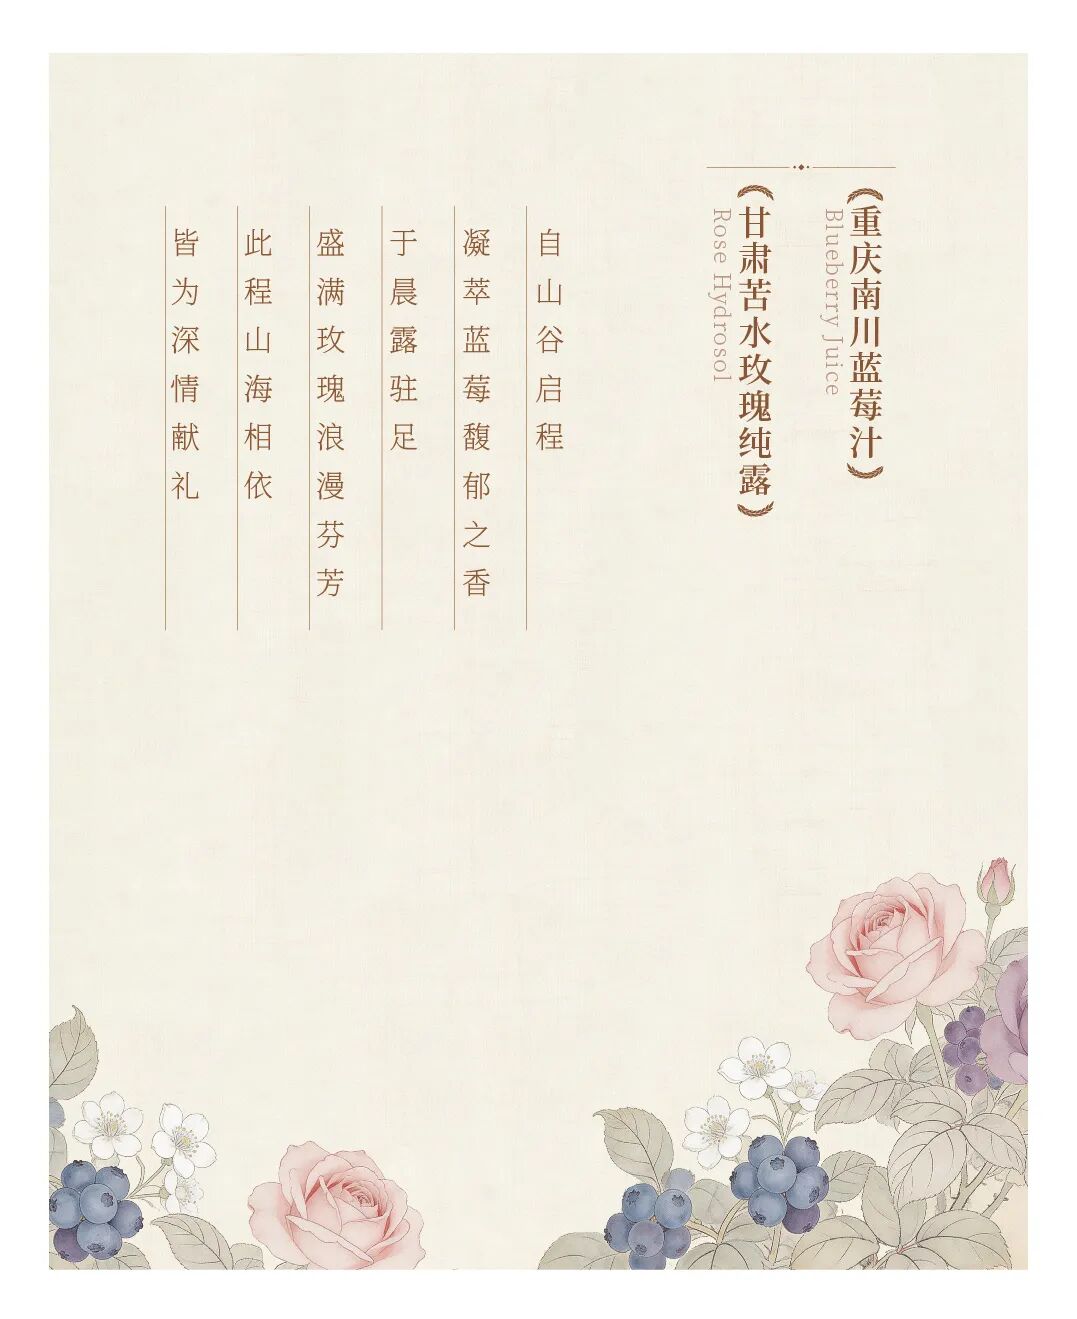 （重庆南川蓝莓汁）
Blueberry Juice
（甘肃苦水玫瑰纯露）
Rose Hydrosol
自山谷启程
凝萃蓝莓馥郁之香
于晨露驻足
盛满玫瑰浪漫芬芳
此程山海相依
皆为深情献礼